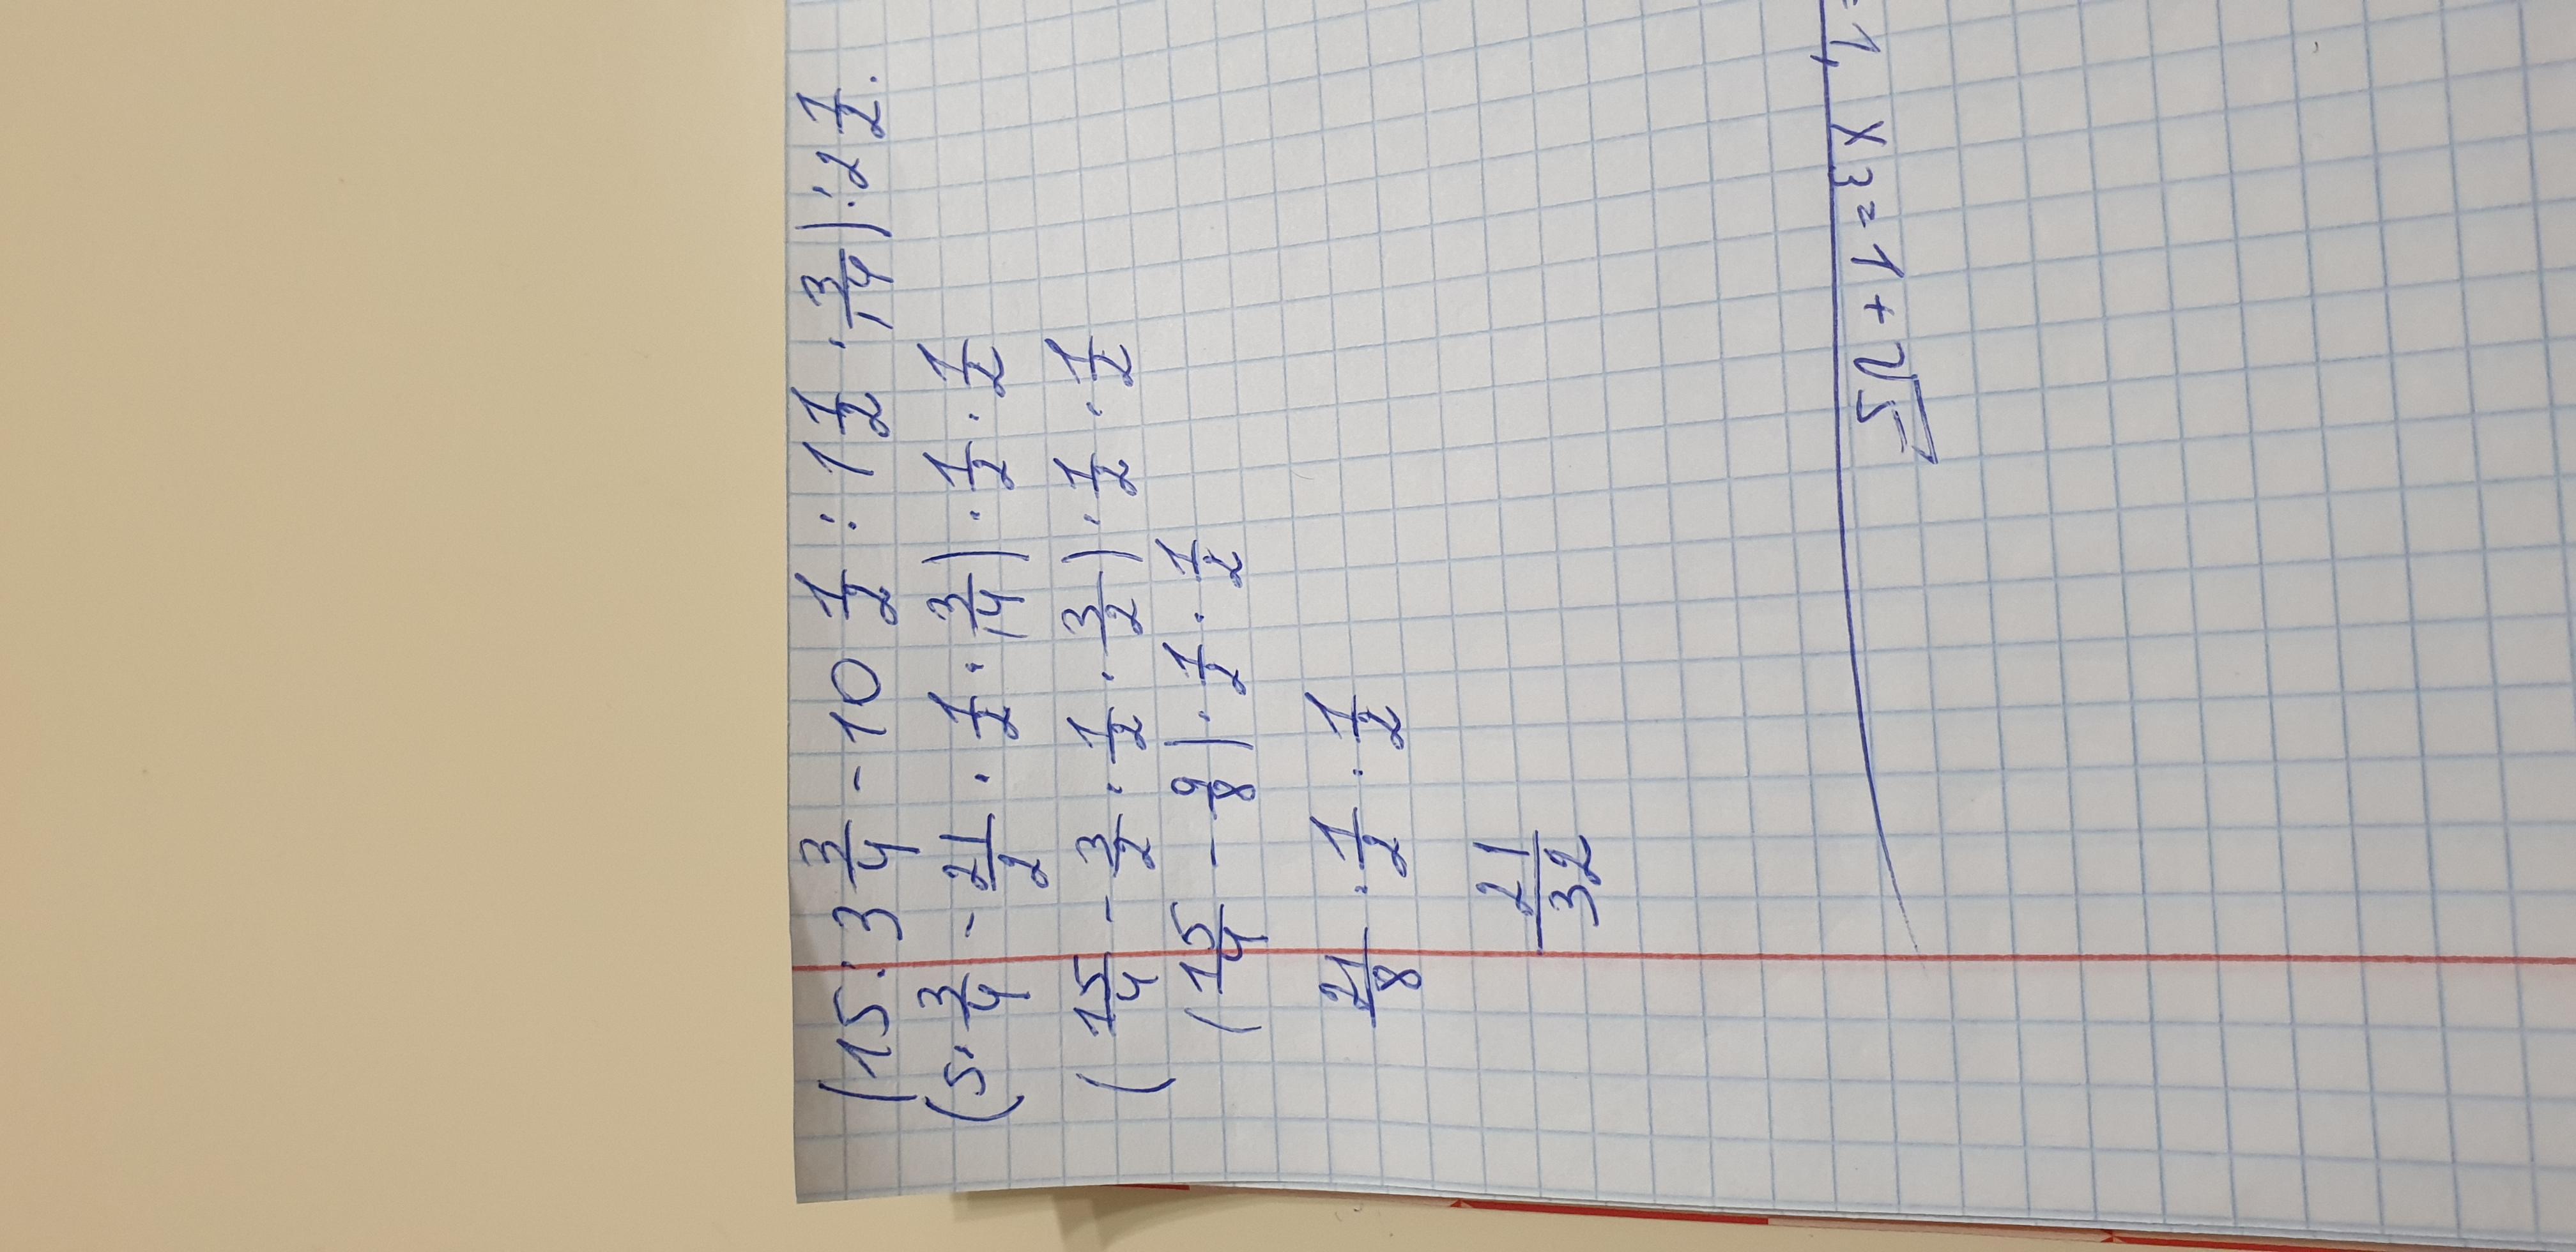 (15 : 3 3/4 - 10 1/2 : 1 1/2 · 3/14) : 2 1/2.
(5 · 3/4 - 21/2 · 1/2 · 3/14) · 1/2 · 1/2
(15/4 - 3/2 · 1/2 · 3/2) · 1/2 · 1/2
(15/4 - 9/8) · 1/2 · 1/2
21/8 · 1/2 · 1/2
21/32
= 1, x3 = 1 + 2√5